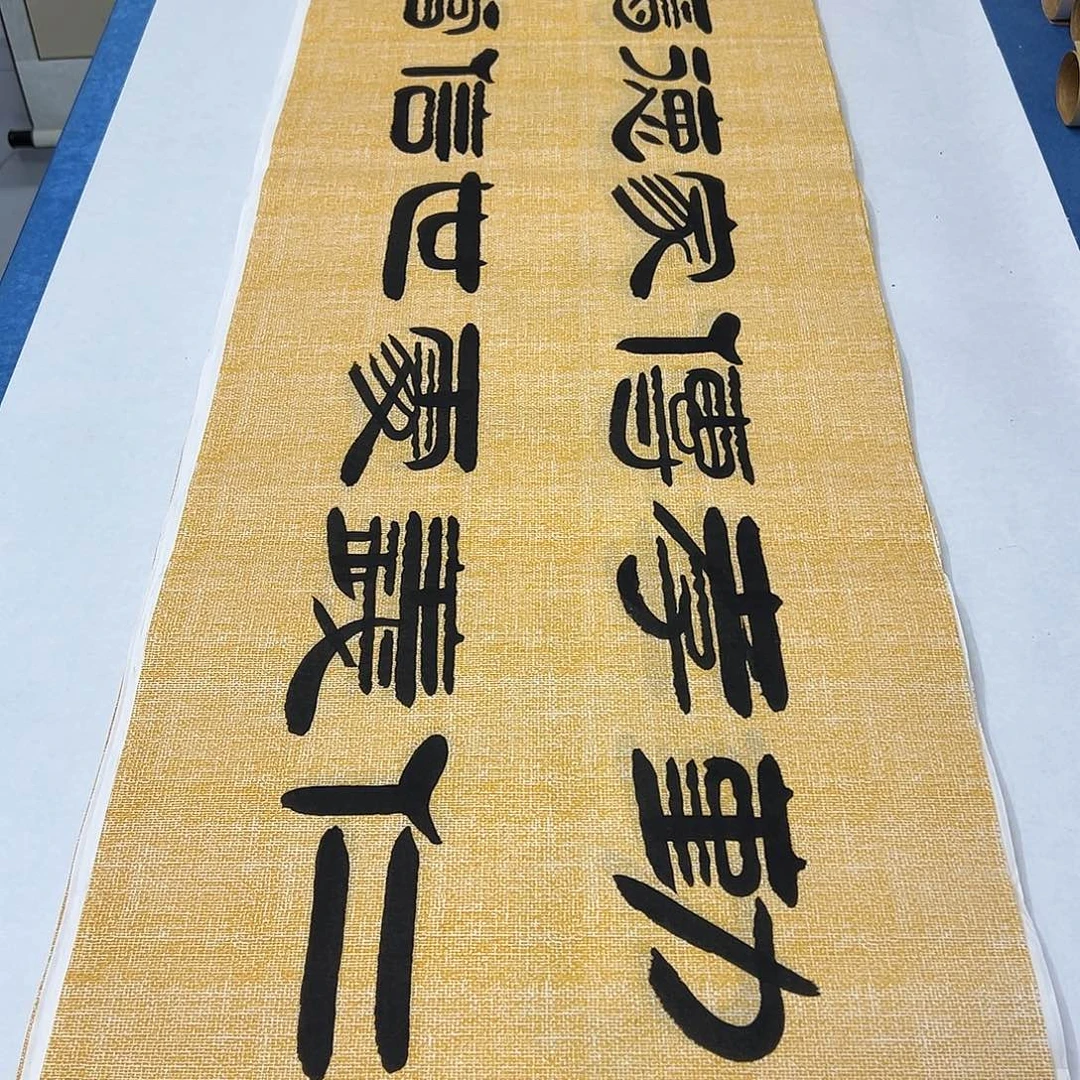 勤孝傳家德
仁義處世信